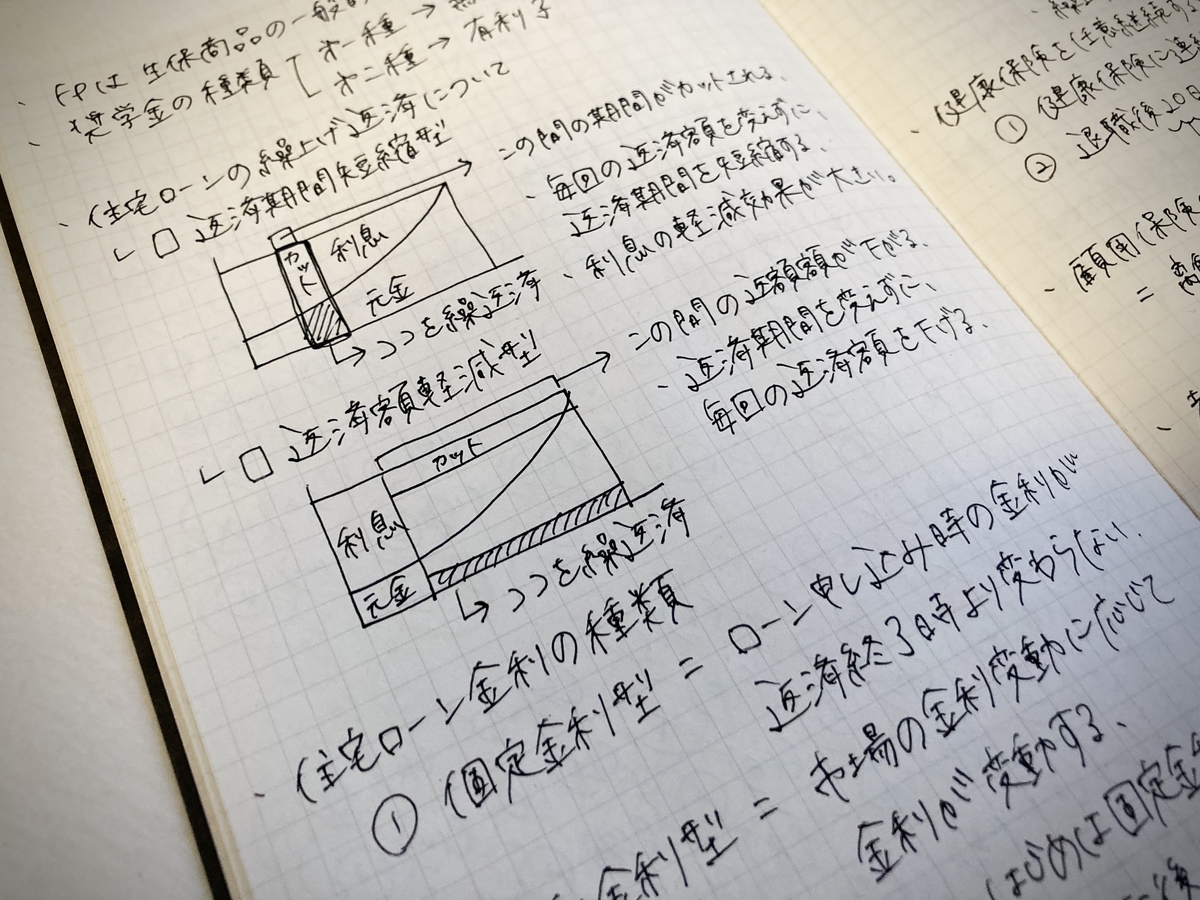 ・FPは生保商品の一般的
・奨学金の種類 第一種 →
第二種 → 有利子
・住宅ローンの繰上げ返済について
└ □ 返済期間短縮型
→ この間の期間がカットされる。
カット
利息
元金
→ ココを繰返済
・毎回の返済額を変えずに、
返済期間を短縮する。
・利息の軽減効果が大きい。
└ □ 返済額軽減型
→ この間の返額額が下がる。
カット
利息
元金
→ ココを繰返済
・返済期間を変えずに、
毎回の返済額を下げる。
・住宅ローン金利の種類
① 固定金利型 = ローン申し込み時の金利が
返済終了時より変わらない。
金利型 = 市場の金利変動に応じて
金利が変動する。
はじめは固定金
健康保険を任意継続する
・健康保険に連
① 健康保険に
② 退職後20日
・雇用保険
=